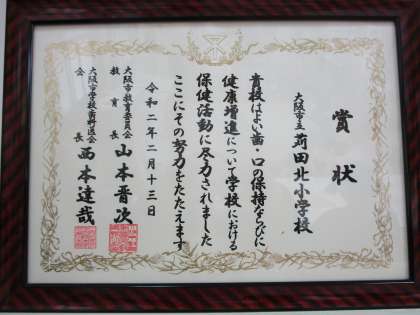 賞状
大阪市立 苅田北小学校
貴校はよい歯・口の保持ならびに
健康増進について学校における
保健活動に尽力されました
ここにその努力をたたえます
令和二年二月十三日
大阪市教育委員会
教育長 山本晋次
大阪市学校歯科医会
会長 西本達哉